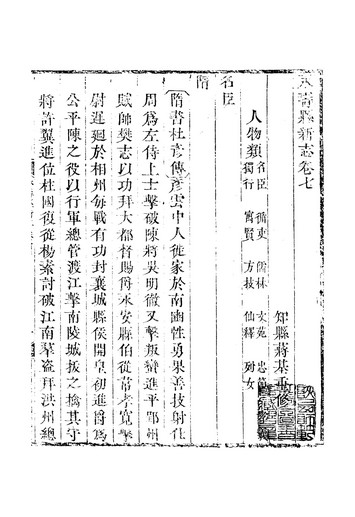 縣新志卷七
知縣蔣基
人物類 名臣 循吏 儒林 文苑 忠
獨行 寓賢 方技 仙釋 列女
名臣
隋
隋書杜彥傳彥雲中人徙家於南豳性勇果善技射仕
周爲左侍上士擊破陳將吳明徹又擊叛蠻進平郢州
賊帥樊志以功拜大都督賜爵永安縣伯從韋孝寬擊
尉遲迥於相州每戰有功封襄城縣侯開皇初進爵爲
公平陳之役以行軍總管渡江擊南陵城拔之擒其守
將許翼進位柱國復從楊素討破江南羣盜拜洪州總